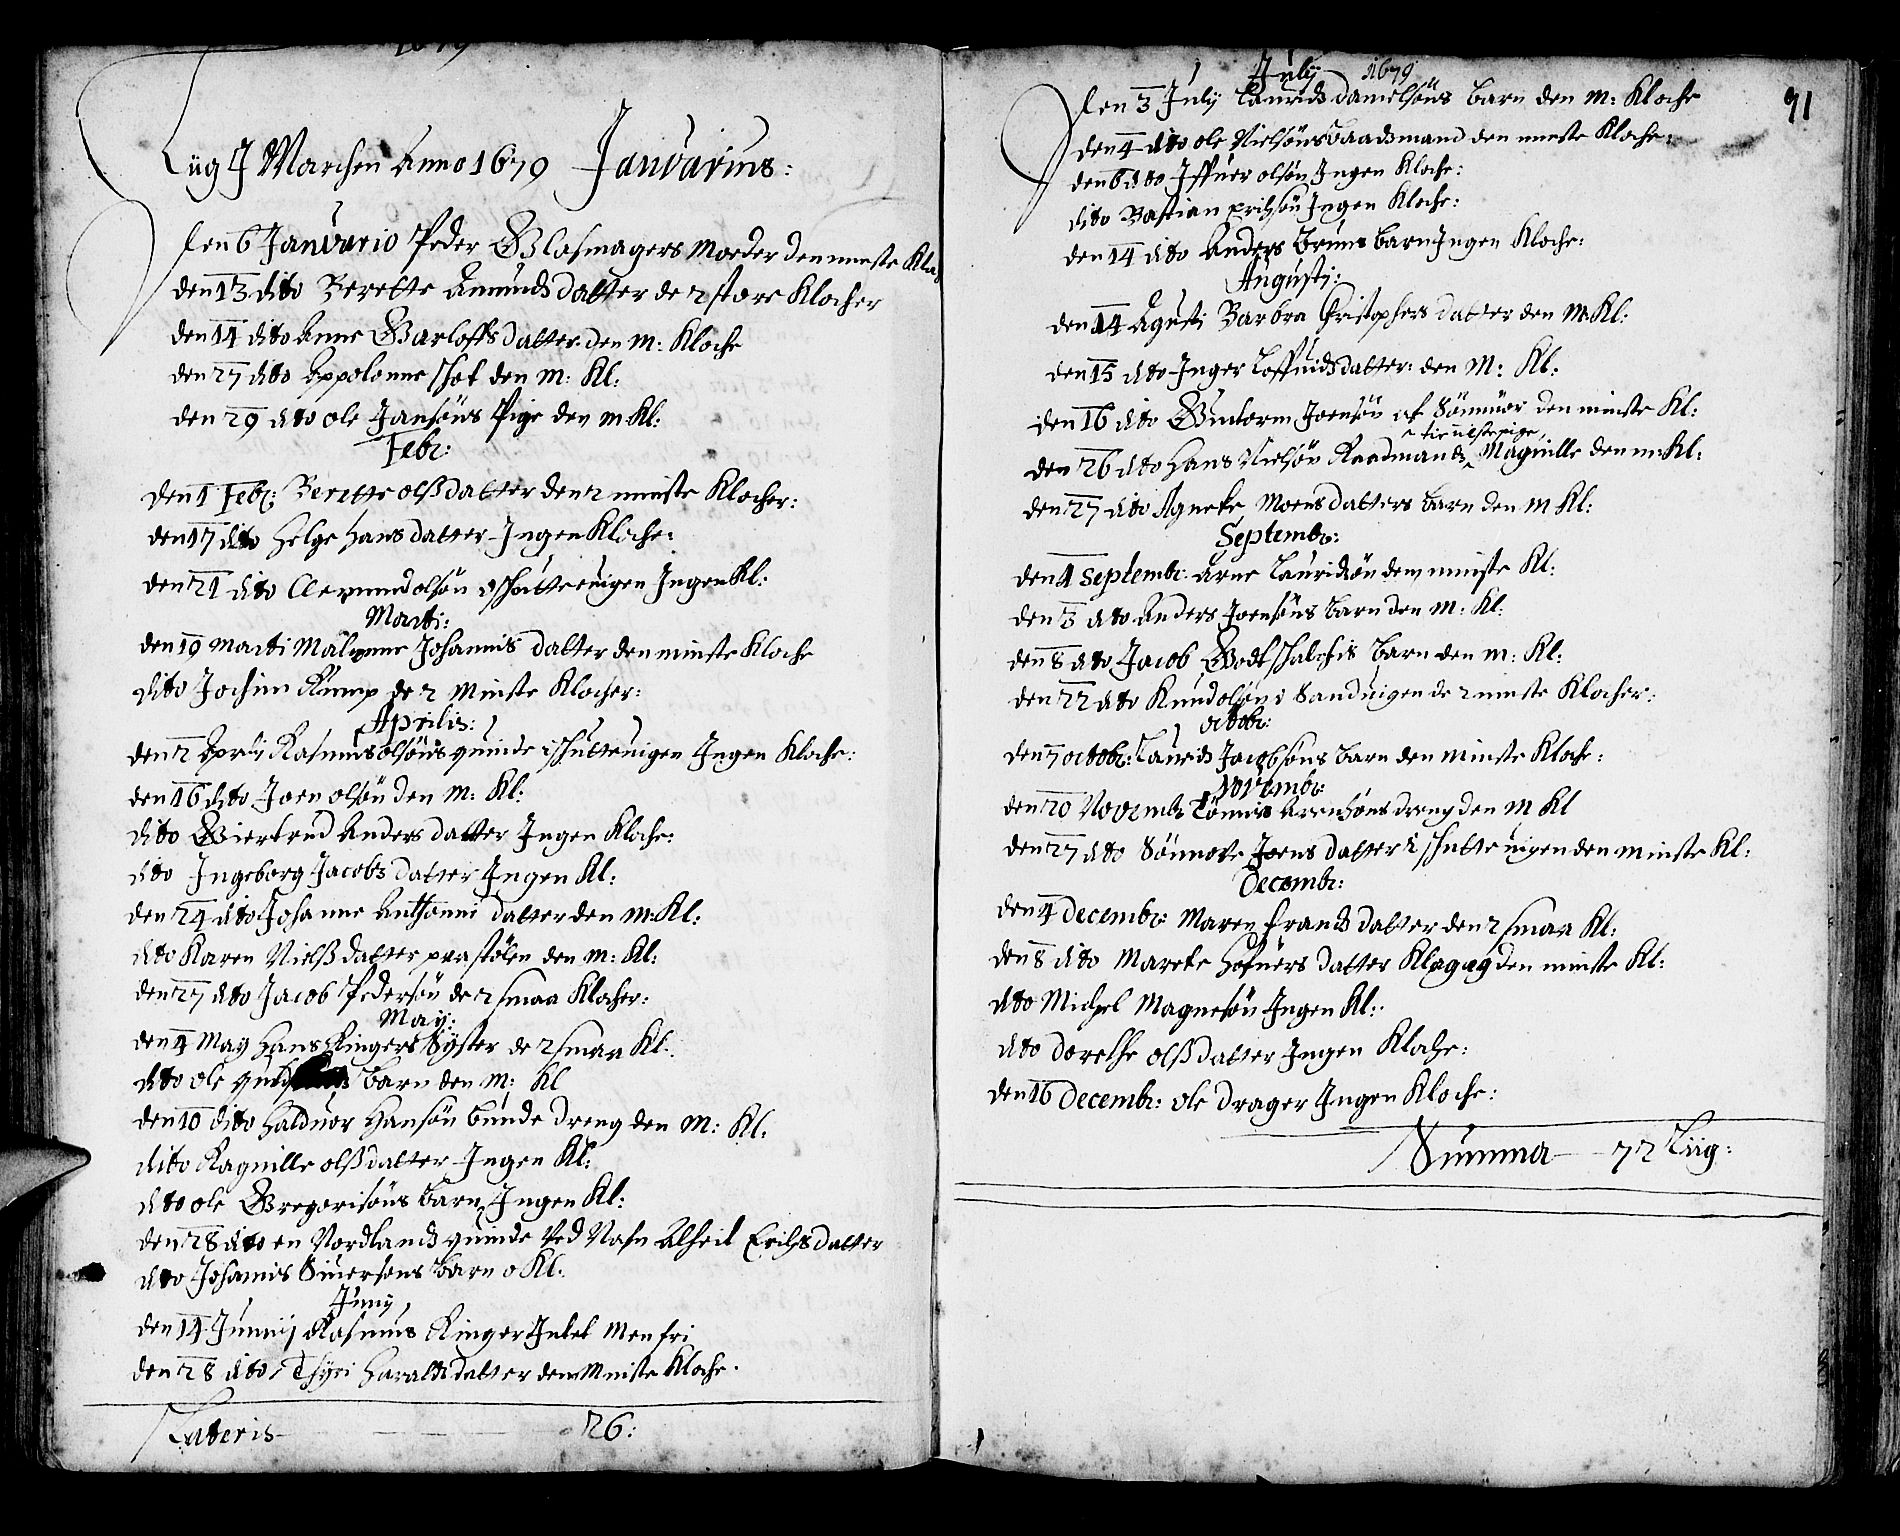 1679
Liig J Marchen Anno 1679 Januarius:
Den 6 Januario Peder Glasmagers Moeder den minste Klo
den 13 dito Berette Amunds datter de 2 store Klocher
den 14 dito Anne Garloffs datter den m: Kloche
den 27 dito Appolonne schot den m: Kl:
den 29 dito ole Jansøns Pige den m Kl:
Febr:
den 1 Febr: Berette olss datter den 2 minste Klocher:
den 17 dito Helge Hans datter Ingen Kloche:
den 21 dito olsøn Ingen Kl:
Marti:
den 19 Marti Malenne Johannis datter den minste Kloche
dito Jochim Kump de 2 Minste Klocher:
Aprilis:
den 2 Aprily Rasmus olsøns quinde i schutteuigen Ingen Kloche:
den 16 dito Joen olsøn den m: Kl:
dito Giertrud Anders datter Ingen Kloche:
dito Ingeborg Jacobs datter Ingen Kl:
den 24 dito Johanne Anthonni datter den m: Kl:
dito Karen Nielss datter den m: Kl:
den 27 dito Jacob Pedersøn de 2 smaa Klocher:
May:
den 4 May Hans Ringers Syster de 2 smaa Kl:
dito ole barn den m: Kl
den 10 dito Halduor Hansøn bunde dreng den m: Kl:
dito Ragnille olss datter Ingen Kl:
dito ole Gregorisøns barn Ingen Kl:
den 28 dito en Nordlands quinde Ved Nafn Alheit Erichs datter
dito Johannis Siuersøns barn o Kl:
Juny
den 14 Junij Rasmus Ringer Intet Men fri
den 28 dito Thyri Haralds datter den Minste Kloche.
Lateris 26:
91
July 1679
den 3 July Laurids danielsøns barn den m: Kloche
den 4 dito ole Nielsøns baadsmand den minste Kloche:
den 6 dito Iffuer olsøn Ingen Kloche:
dito Bastian Erichsøn Ingen Kloche:
den 14 dito Anders bruns barn Ingen Kloche:
Augusti:
den 14 Agusti Barbra Christophers datter den m: Kl:
den 15 dito Inger datter: den m: Kl:
den 16 dito Guttorm Joensøn af Sønmør den minste Kl:
tienistepige,
den 26 dito Hans Nielsøn Raadmands Magnille den m: Kl:
den 27 dito Agnete Moens datters barn den m Kl:
Septembr:
den 4 Septembr: arne Lauridsøn den minste Kl:
den 5 dito Anders Joensøns barn den m: Kl:
den 8 dito Jacob Godtschalchis barn den m: Kl:
den 22 dito Knud olsøn i Sanduigen de 2 minste Klocher:
octobr:
den 7 octobr: Laurids Jacobsøns barn den minste Kloche:
Novembr:
den 20 Novembr Tønnis Arensøns dreng den m Kl
den 27 dito Sønnove Joens datter i schutteuigen den minste Kl:
Decembr:
den 4 Decembr: Maren frands datter den 2 smaa Kl:
den 8 dito Marete Hofners datter den minste Kl:
dito Michel Magnesøn Ingen Kl:
dito dorethe olss datter Ingen Kloche:
den 16 Decembr: ole drager Ingen Kloche:
Summa 72 Liig: